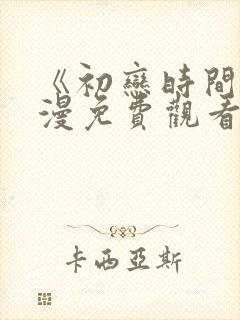 《初戀時間
漫免費觀看
卡西亞斯